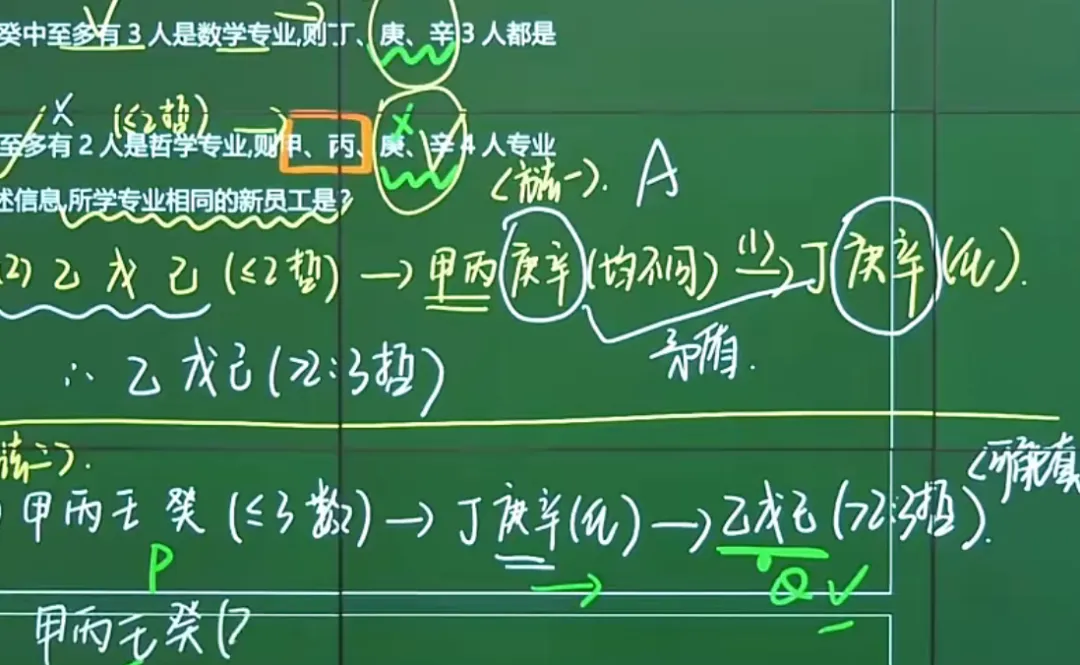 癸中至多有 3 人是数学专业,则丁、庚、辛 3 人都是
X (≤2哲) →
至多有 2 人是哲学专业,则甲、丙、庚、辛 4 人专业
述信息,所学专业相同的新员工是?
(方法一). A
2) 乙 戊 己 (≤2哲) → 甲丙庚辛(均不同) (1)→ 丁庚辛(化).
矛盾.
∴ 乙 戊己(>2:3哲)
法二).
甲丙壬癸(≤3数) → 丁庚辛(化) → 乙戊己(>2:3哲). (可能真
P → Q √
甲丙壬癸(>